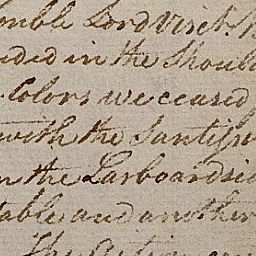 Lord Visct.
in the Should
Colors we ceased
with the Santiss
the Larboard sid
table and another